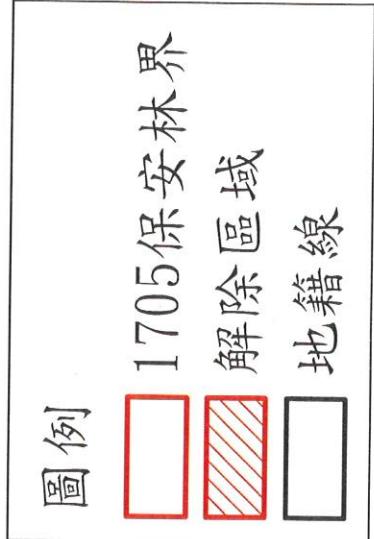 圖例
1705保安林界
解除區域
地籍線